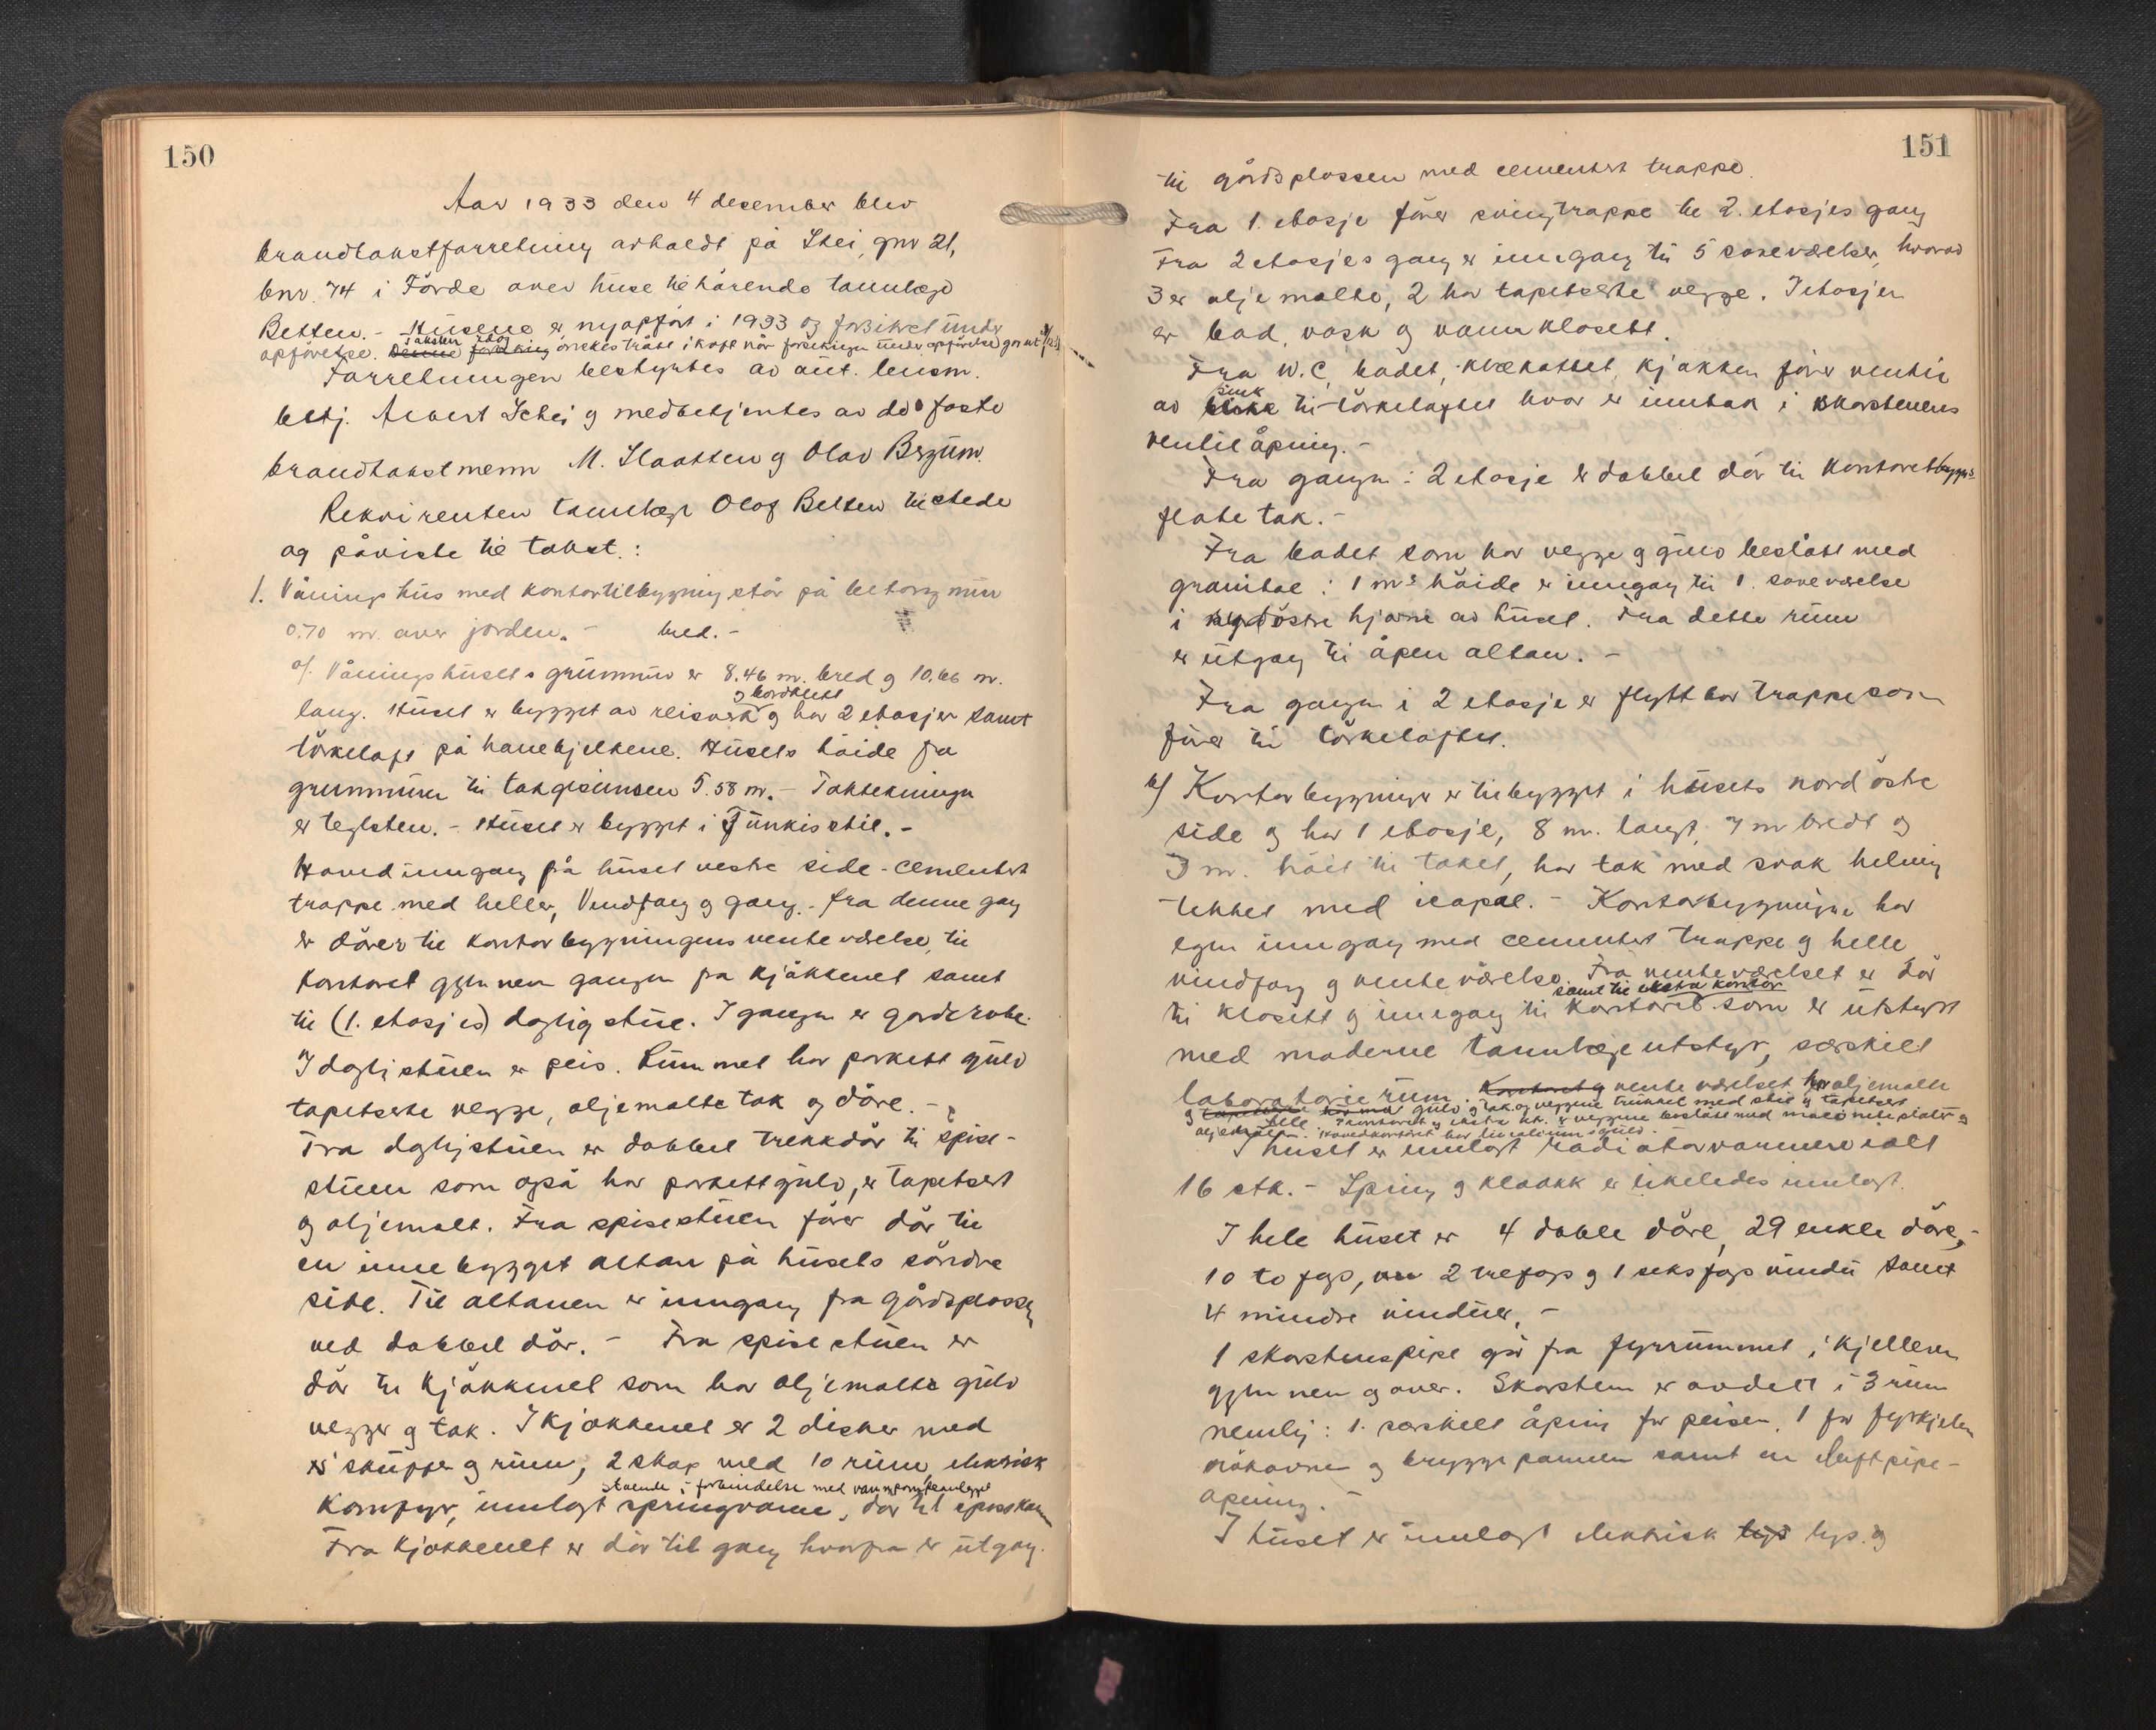 150
Aar 1933 den 4 desember blev
brandtakstforretning avholdt på Skei, gnr 21,
bnr. 74 i Förde over huse tilhörende tannlæge
Betten. - Husene er nyopfört i 1933 og forsikret under
opförelse. Denne forsikring önskes trått i kraft når forsikringen under opförelse går ut
Taksten
Forretningen bestyrtes av aut. lensm.
betj. Albert Schei og medbetjentes av de faste
brandtakstmenn M. Slaatten og Olav Bergum.
Rekvirenten tannlæge Olaf Betten tilstede
og påviste til takst.:
1. Våningshus med kontortilbygning står på betong mur
0.70 m. over jorden. -
a/. Våningshusets grunnmur er 8.46 m. bred og 10.66 m.
og bordklætt
lang. Huset er bygget av reisverk og har 2 etasjer samt
törkeloft på hanebjelkene. Husets höide fra
grunnmuren til takgesimsen 5.58 m. - Taktekningen
er teglsten. - Huset er bygget i Funkisstil. -
Hovedinngang på huset vestre side - cementert
trappe med heller, Vindfang og gang. - fra denne gang
er dörer til kontorbygningens venteværelse, til
kontoret gjennem gangen fra kjökkenet samt
til (1. etasjes) dagligstue. I gangen er garderobe.
I dagligstuen er peis. Rummet har parkett gulv
tapetserte vegge, oljemalte tak og döre. -
Fra dagligstuen er dobbel trekkdör til spise-
stuen som også har parkettgulv, er tapetsert
og oljemalt. Fra spisestuen förer dör til
en innebygget altan på husets söndre
side. Til altanen er inngang fra gårdsplassen
ved dobbel dör. - Fra spisestuen er
dör til kjökkenet som har oljemalte gulv
vegger og tak. I kjökkenet er 2 disker med
skuffer og rum, 2 skap med 10 rum, elektrisk
stående i forbindelse med varmtvannsanlegget
Komfyr, innlagt springvann, dör til spisskam
Fra kjökkenet er dör til gang hvorfra er utgang.
151
til gårdsplassen med cementert trappe.
Fra 1. etasje förer svingtrappe til 2. etasjes gang
Fra 2 etasjes gang er inngang til 5 soveværelser, hvorav
3 er oljemalte, 2 har tapetserte vegge. I etasjen
er bad, vask og vannklosett.
Fra W.C., badet, klækottet, kjökken förer ventil
sink
av blikk til törkeloftet hvor er inntak i skorstenens
ventilåpning. -
Fra gangen i 2 etasje er dobbel dör til kontorets bygn.s
flate tak. -
Fra badet som har vegge og gulv beslått med
granitol i 1 m's höide er inngang til 1. soveværelse
i sydöstre hjörne av huset. Fra dette rum
er utgang til åpen altan. -
Fra gangen i 2 etasje er flyttbar trappe som
förer til törkeloftet.
b/ Kontorbygningen er tilbygget i husets nordöstre
side og har 1 etasje, 8 m. langt, 7 m bredt og
3 m. höit til taket, har tak med svak helning
tekket med icopal. - Kontorbygningen har
egen inngang med cementert trappe og helle
vindfang og venteværelse. Fra venteværelset er dör
samt til ekstra kontor
til klosett og inngang til kontoret som er utstyrt
med moderne tannlægeutstyr, særskilt
laboratorierum. Kontoret og venteværelset har oljemalte
gulv og tak og veggene trukket med strie og tapetsert
Hovedkontoret har linoleums gulv. -
I huset er innlagt radiatorvarmere ialt
16 stk. - Spring og kloakk er likeledes innlagt.
I hele huset er 4 doble döre, 29 enkle döre, -
10 to fags, 2 trefags og 1 seksfags vindu samt
4 mindre vinduer. -
1 skorstenspipe går fra fyrrummet i kjelleren
gjennem og over. Skorstenen er avdelt i 3 rum
nemlig: 1. særskilt åpning for peisen, 1 for fyrkjelen
og bryggepannen samt en luftpipe-
åpning. -
I huset er innlagt elektrisk lys lys og